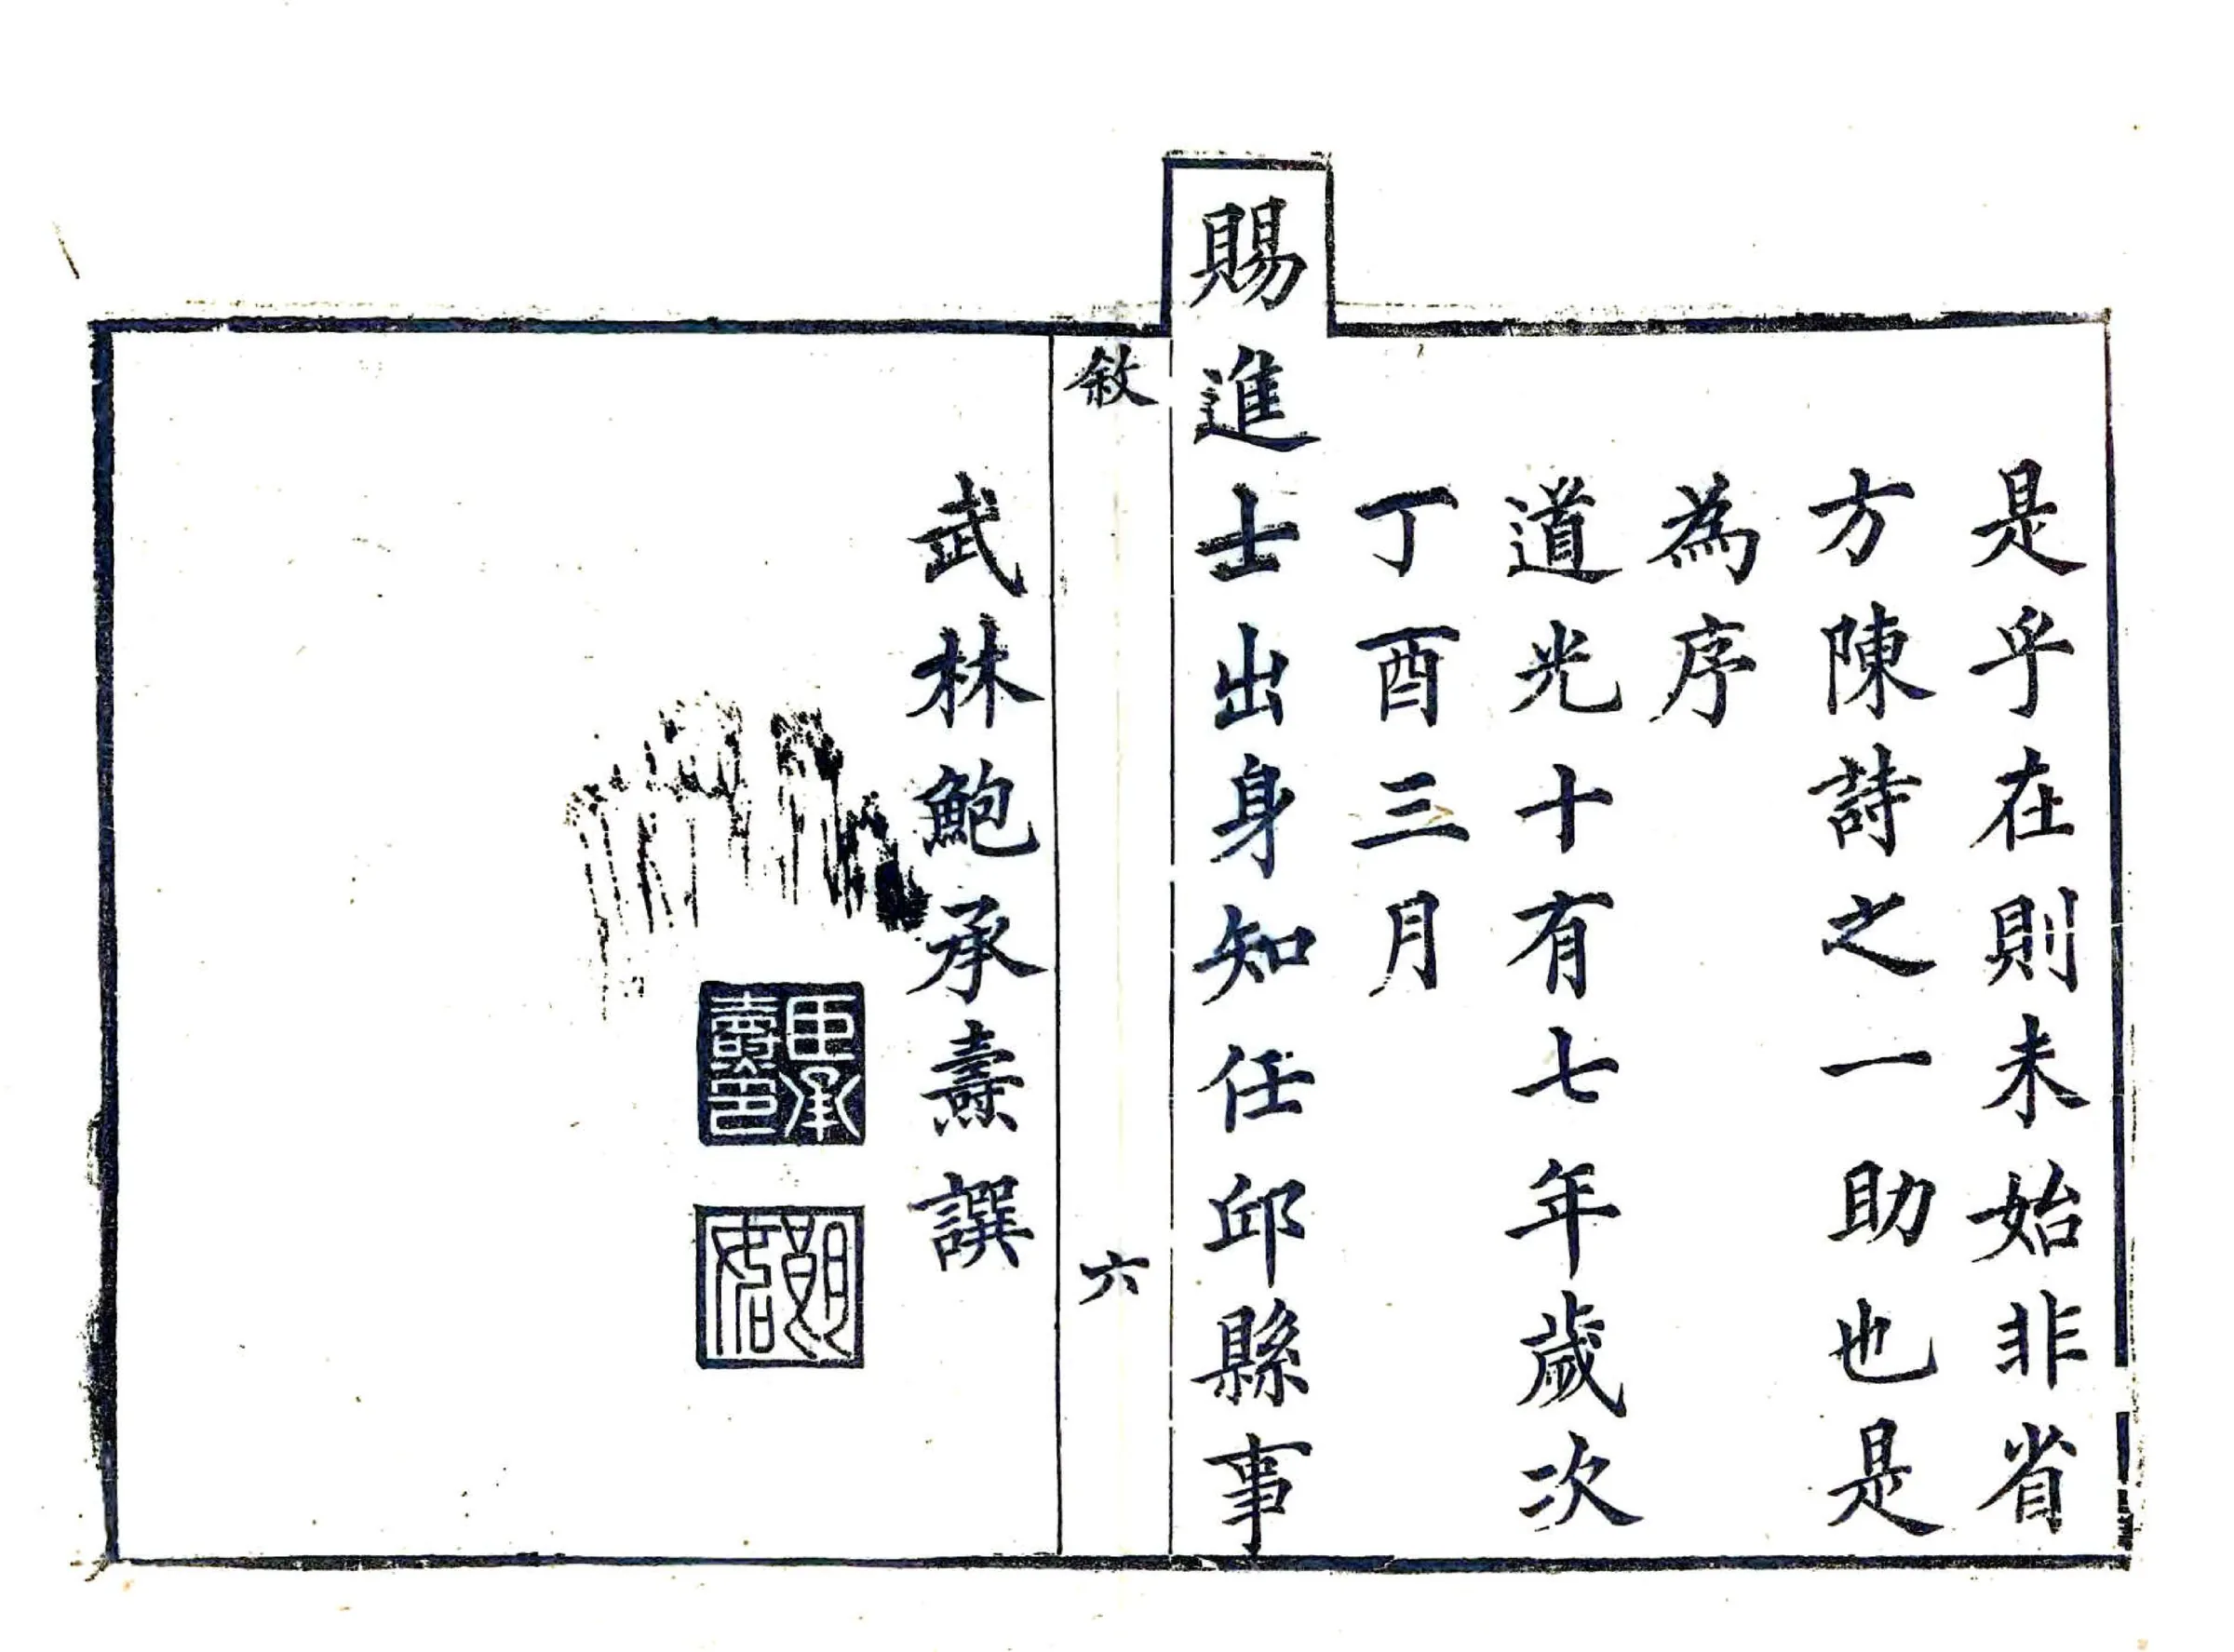 是乎在則未始非省
方陳詩之一助也是
為序
道光十有七年歲次
丁酉三月
賜進士出身知任邱縣事
敘
六
武林鮑承燾撰
臣承
燾印